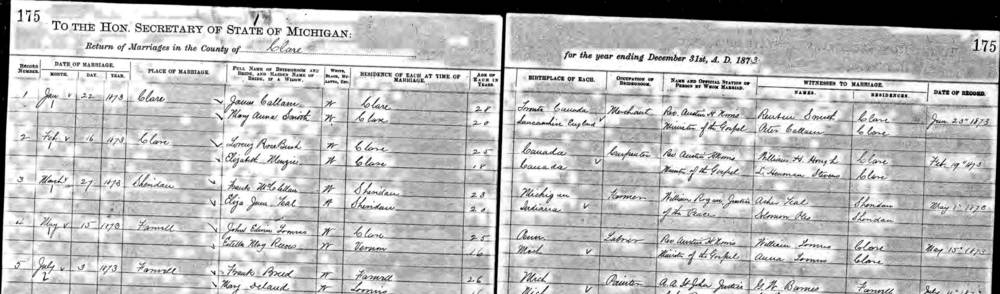 175
TO THE HON. SECRETARY OF STATE OF MICHIGAN:
Return of Marriages in the County of Clare
for the year ending December 31st, A. D. 1873
175
RECORD NUMBER.
DATE OF MARRIAGE.
MONTH. DAY. YEAR.
PLACE OF MARRIAGE.
FULL NAME OF BRIDEGROOM AND BRIDE, AND MAIDEN NAME OF BRIDE, IF A WIDOW.
WHITE, BLACK, MULATTO, ETC.
RESIDENCE OF EACH AT TIME OF MARRIAGE.
AGE OF EACH IN YEARS.
BIRTHPLACE OF EACH.
OCCUPATION OF BRIDEGROOM.
NAME AND OFFICIAL STATION OF PERSON BY WHOM MARRIED.
WITNESSES TO MARRIAGE.
NAMES. RESIDENCES.
DATE OF RECORD.
1 Jan 22 1873 Clare James Callam W Clare 28 Canada Merchant Rev. Austin H Norris Smith Clare Jan 23d 1873
Mary Anna Smith W Clare 20 Lancashire England Minister of the Gospel Peter Callam Clare
2 Feb 16 1873 Clare Rose Bush W Clare 25 Canada Carpenter Rev Austin H Norris William H. Hough Clare Feb 19th 1873
Elizabeth W Clare 18 Canada Minister of the Gospel Clare
3 March 27 1873 Sheridan Frank McClellan W Sheridan 23 Michigan Farmer William Justice Sheridan May 1873
Eliza Jane W Sheridan 20 Indiana of the Peace Solomon Sheridan
4 May 15 1873 Farwell John Loomis W Clare 25 Penn Labor Rev Austin H Norris William Loomis Clare May 15th 1873
Estella May W Vernon 16 Mich Minister of the Gospel Anna Loomis Clare
5 July 3 1873 Farwell Frank W Farwell 26 Mich Painter A. A. St John Justice Farwell
Mary Loomis Mich